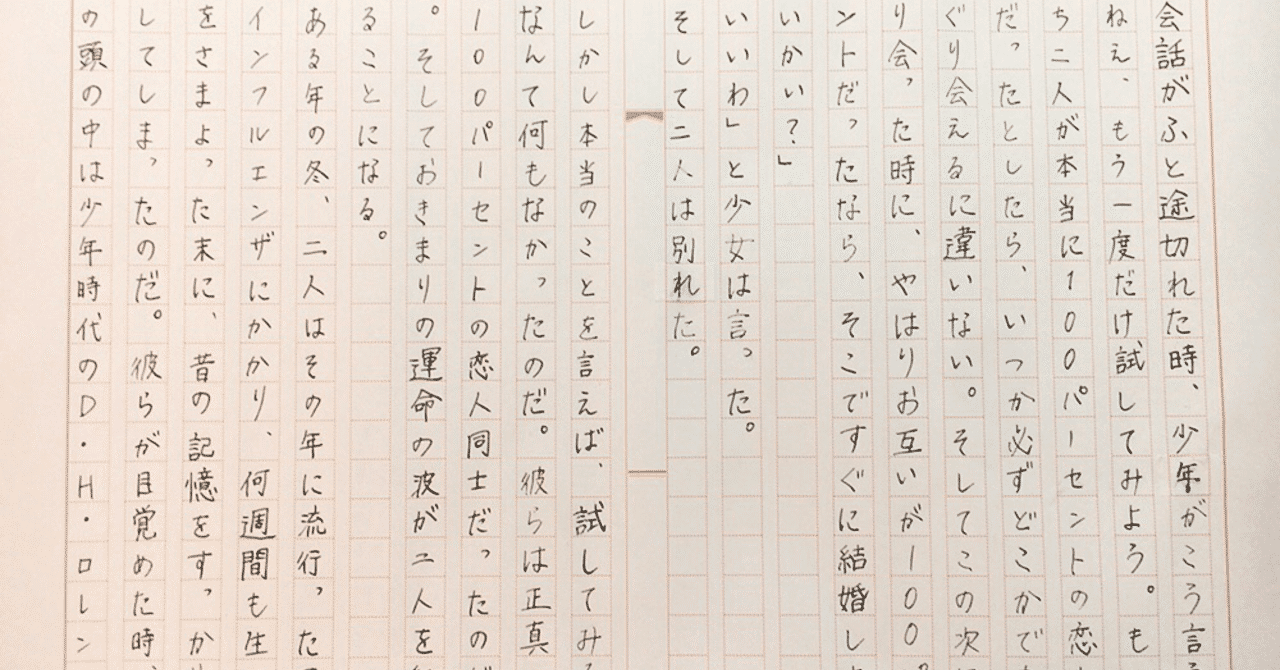 会話がふと途切れた時、少年がこう言
ねえ、もう一度だけ試してみよう。も
ち二人が本当に100パーセントの恋
だったとしたら、いつか必ずどこかで
ぐり会えるに違いない。そしてこの次に
り会った時に、やはりお互いが100
ントだったなら、そこですぐに結婚し
いかい?」
いいわ」と少女は言った。
そして二人は別れた。
しかし本当のことを言えば、試してみ
なんて何もなかったのだ。彼らは正真
100パーセントの恋人同士だったの
。そしておきまりの運命の波が二人を
ることになる。
ある年の冬、二人はその年に流行った
インフルエンザにかかり、何週間も生
をさまよった末に、昔の記憶をすっか
してしまったのだ。彼らが目覚めた時、
の頭の中は少年時代のD・H・ロレン